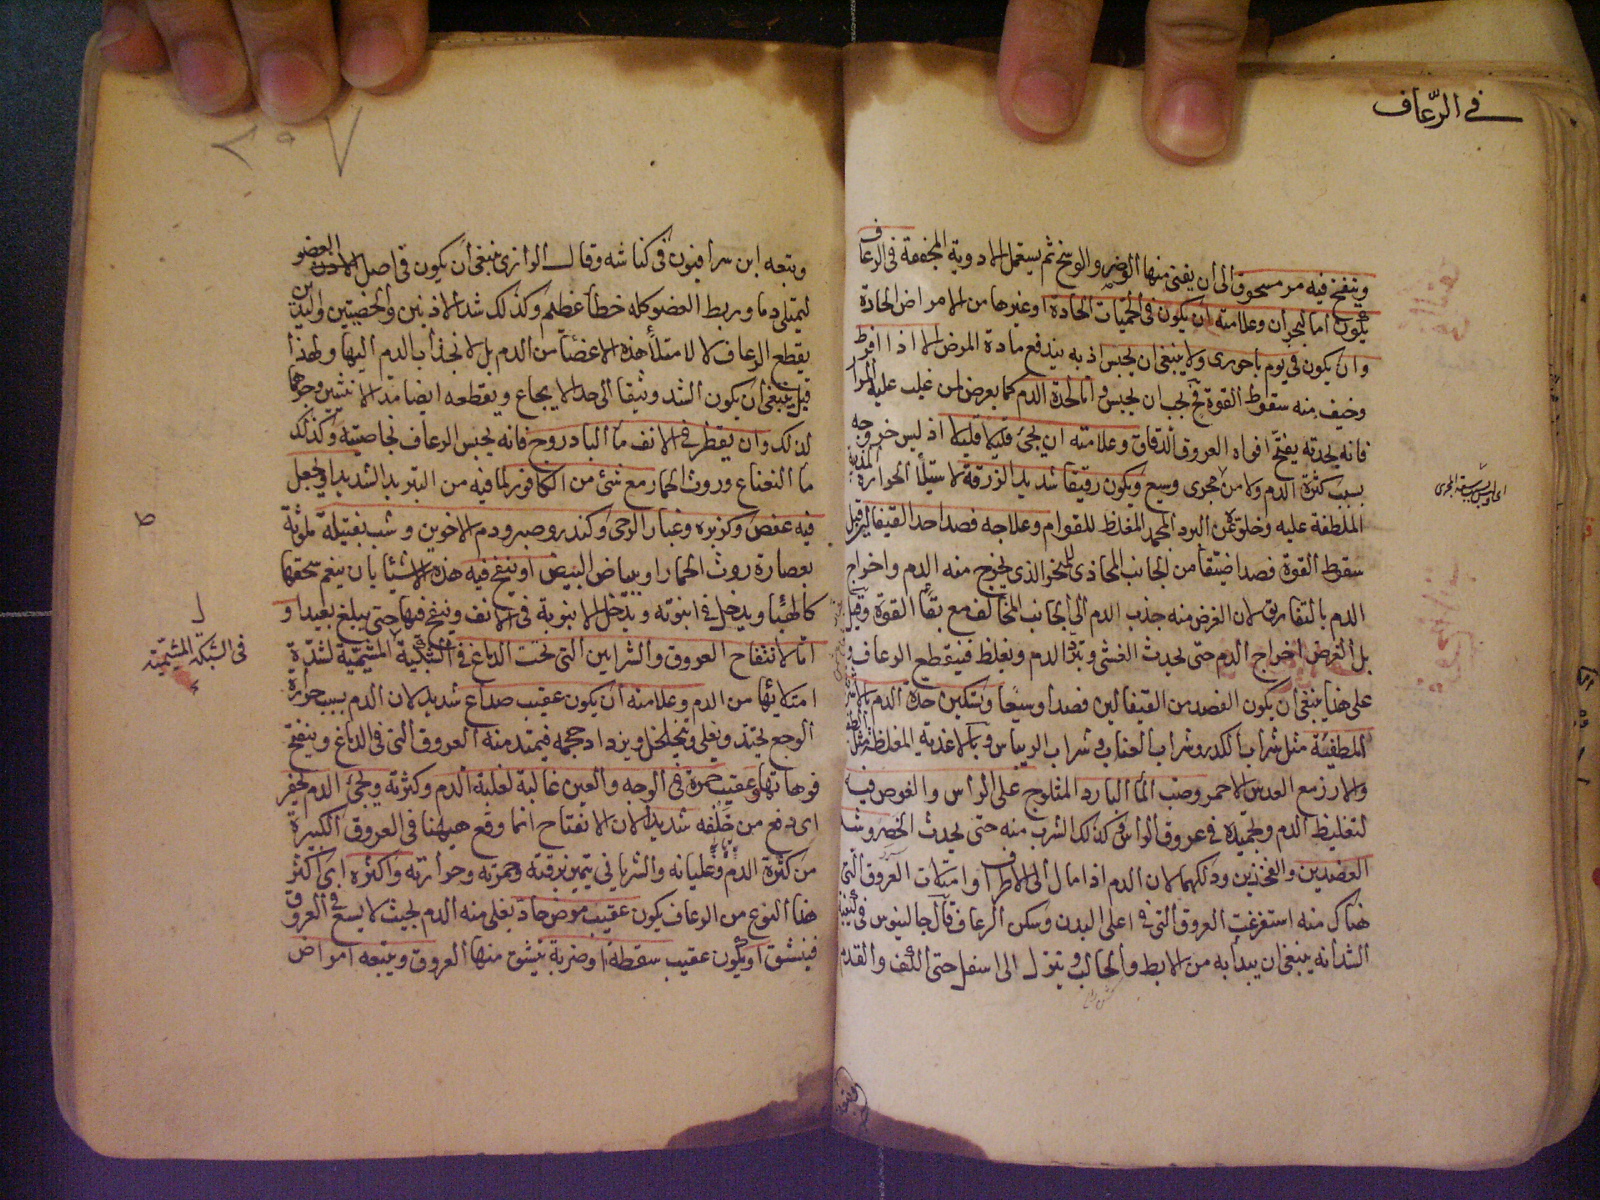 في الرعاف
وينفخ فيه مر مسحوق الى ان يفنى منها الوضر والوسخ ثم يستعمل الادوية المجففة في الرعاف
يكون اما لبحران وعلامته ان يكون في الحميات الحادة او غيرها من الامراض الحادة
وان يكون في يوم باحورى ولا ينبغي ان يحبس اذ به يندفع مادة المرض الا اذا افرط
وخيف منه سقوط القوة فح يجب ان يحبس واما لحدة الدم كما يعرض لمن غلب عليه المرار
فانه لحدته يفتح افواه العروق الدقاق وعلامته ان يجئ قليلا قليلا اذ ليس خروجه
بسبب كثرة الدم ولا من مجرى وسيع ويكون رقيقا شديد الزرقة لاستيلا الحرارة المذيبة
الملطفة عليه وخلوه عن البرد المجمد المغلظ للقوام وعلاجه فصد احد القيفالين قبل
سقوط القوة فصدا ضيقا من الجانب المحاذى للمنخر الذى يخرج منه الدم واخراج
الدم بالتفاريق لان الغرض منه جذب الدم الى الجانب المخالف مع بقا القوة وقيل
بل الغرض اخراج الدم حتى يحدث الغشى ويبرد الدم ويغلظ فينقطع الرعاف و
على هذا ينبغي ان يكون الفصد من القيفالين فصدا وسيعا وتسكين حدة الدم بالاشربة
المطفئة مثل شراب الكدر وشراب العناب وشراب الريباس وبالاغذية المغلظة مثل
والارز مع العدس الاحمر وصب الما البارد المثلوج على الراس والغوص فيه
لتغليظ الدم وتجميده في عروق الراس وكذلك الشرب منه حتى يحدث الخصر وشد
العضدين والفخذين ودلكهما لان الدم اذا مال الى الاطراف وامتلات العروق التى
هناك منه استفرغت العروق التى في اعلى البدن وسكن الرعاف قال جالينوس في كيفية
الشد انه ينبغي ان يبدأ به من الابط والحالب وينزل الى اسفل حتى الكف والقدم
ويتبعه ابن سرافيون في كناشه وقال الرازى ينبغي ان يكون في اصل العضو
ليمتلى دما وربط العضو كله خطأ عظيم وكذلك شد الاذنين والخصيتين واليدين
يقطع الرعاف لا لامتلأ هذه الاعضأ من الدم بل لانجذاب الدم اليها ولهذا
قيل ينبغي ان يكون الشد وثيقا الى حد الايجاع ويقطعه ايضا مد الانثيين وجرهما
لذلك وان يقطر في الانف مآ الباذروج فانه يحبس الرعاف بخاصيته وكذلك
ما النعناع وروث الحمار مع شئ من الكافور لما فيه من التبريد الشديد او يجعل
فيه عفص وكزبره وغبار الرحى وكندر وصبر ودم الاخوين وشب بفتيلة ملوثة
بعصارة روث الحمار او ببياض البيض او ينفخ فيه هذه الاشيأ بان ينعم سحقها
كالهبأ ويدخل في انبوبة ويدخل الانبوبة في الانف وينفخ فيها حتى يبلغ بعيدا و
اما لانفتاح العروق والشرايين التى تحت الدماغ في الشبكة المشيمية لشدة
امتلائها من الدم وعلامته ان يكون عقيب صداع شديد لان الدم بسبب حرارة
الوجع يحتد ويغلى ويتخلخل ويزداد حجمه فيمتد منه العروق التى في الدماغ وينفتح
فوهاتها وعقيب حمرة في الوجه والعين غالبة لغلبة الدم وكثرته ويجئ الدم بحفز
اى دفع من خلفه شديد لان الانفتاح انما وقع ههنا في العروق الكبيرة
من كثرة الدم وغليانه والشرياني يتميز برقته وحمرته وحرارته واكثره اى اكثر
هذا النوع من الرعاف يكون عقيب مرض حاد يغلى منه الدم بحيث لا يسع في العروق
فينشق او يكون عقيب سقطة او ضربة ينشق منها العروق ويتبعه امراض
في الشبكة المشيمية